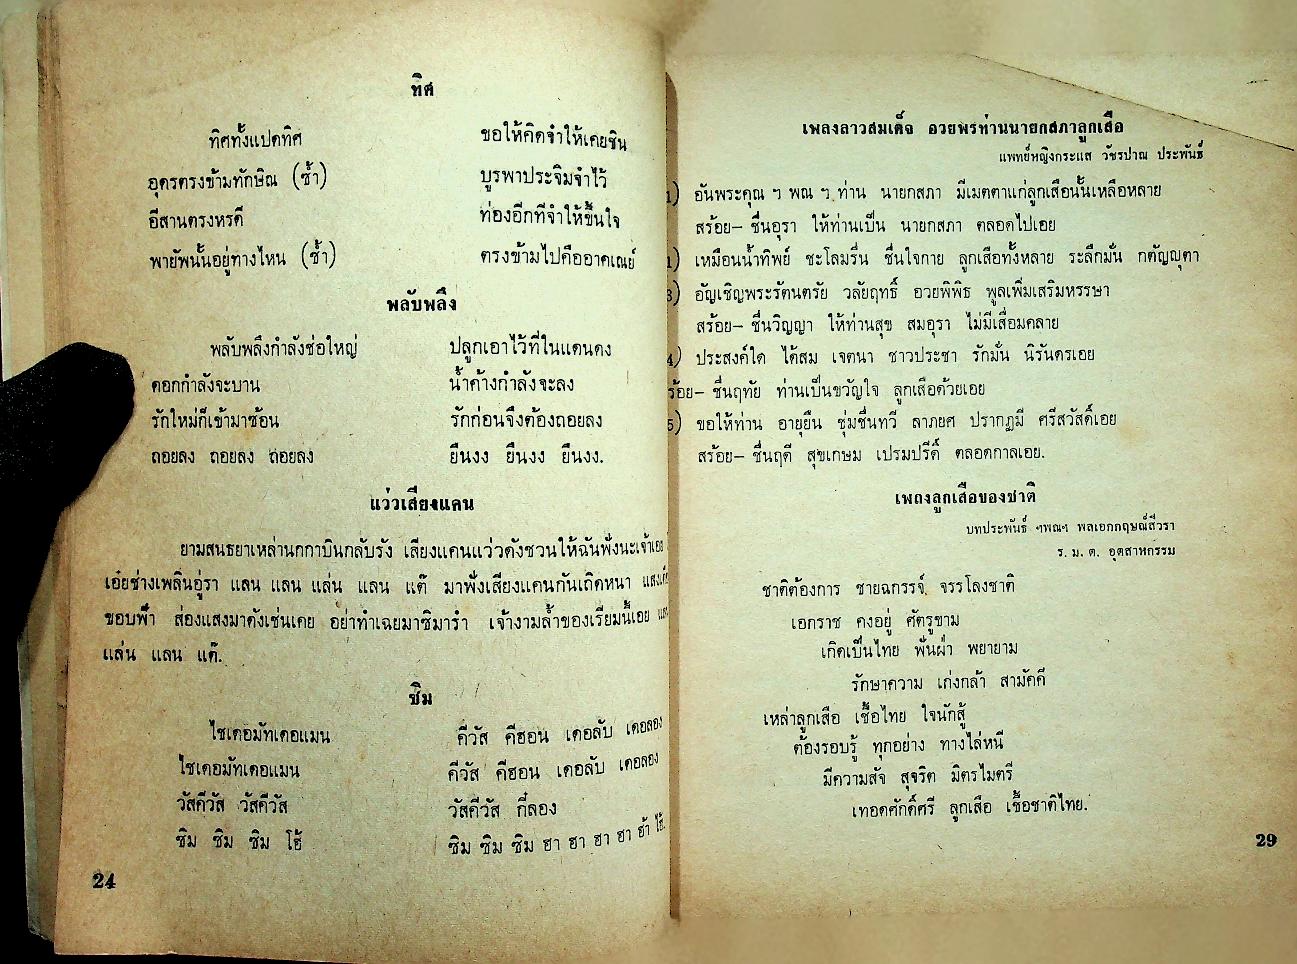 ทิศ
ทิศทั้งแปดทิศ ขอให้คิดจำให้เคยชิน
อุดรตรงข้ามทักษิณ (ซ้ำ) บูรพาประจิมจำไว้
อีสานตรงหรดี ท่องอีกทีจำให้ขึ้นใจ
พายัพนั้นอยู่ทางไหน (ซ้ำ) ตรงข้ามไปคืออาคเณย์
พลับพลึง
พลับพลึงกำลังช่อใหญ่ ปลูกเอาไว้ที่ในแดนดง
ดอกกำลังจะบาน น้ำค้างกำลังจะลง
รักใหม่ก็เข้ามาซ้อน รักก่อนจึงต้องถอยลง
ถอยลง ถอยลง ถอยลง ยืนงง ยืนงง ยืนงง.
แว่วเสียงแคน
ยามสนธยาเหล่านกกาบินกลับรัง เสียงแคนแว่วดังชวนให้ฉันฟังนะเจ้าเอย
เอ๋ยช่างเพลินอุรา แลน แลน แล่น แลน แต๊ มาฟังเสียงแคนกันเถิดหนา
ขอบฟ้า ส่องแสงมาดังเช่นเคย อย่าทำเฉยมาซิมารำ เจ้างามล้ำของเรียมนี้เอย
แล่น แลน แต๊.
ซิม
ไชเดอมัทเดอแมน คีวัส คีฮอน เดอลับ เดอลอง
ไชเดอมัทเดอแมน คีวัส คีฮอน เดอลับ เดอลอง
วัสคีวัส วัสคีวัส วัสคีวัส กี่ลอง
ซิม ซิม ซิม โฮ้ ซิม ซิม ซิม ฮา ฮา ฮา ฮา ฮ้า ไฮ้.
24
เพลงลาวสมเด็จ อวยพรท่านนายกสภาลูกเสือ
แพทย์หญิงกระแส วัชรปาณ ประพันธ์
1) อันพระคุณ ฯ พณ ฯ ท่าน นายกสภา มีเมตตาแก่ลูกเสือนั้นเหลือหลาย
สร้อย– ชื่นอุรา ให้ท่านเป็น นายกสภา ตลอดไปเอย
) เหมือนน้ำทิพย์ ชะโลมรื่น ชื่นใจกาย ลูกเสือทั้งหลาย ระลึกมั่น กตัญญุตา
3) อัญเชิญพระรัตนตรัย วลัยฤทธิ์ อวยพิพิธ พูลเพิ่มเสริมหรรษา
สร้อย– ชื่นวิญญา ให้ท่านสุข สมอุรา ไม่มีเสื่อมคลาย
4) ประสงค์ใด ได้สม เจตนา ชาวประชา รักมั่น นิรันดรเอย
ร้อย– ชื่นฤทัย ท่านเป็นขวัญใจ ลูกเสือด้วยเอย
5) ขอให้ท่าน อายุยืน ชุ่มชื่นทวี ลาภยศ ปรากฏมี ศรีสวัสดิ์เอย
สร้อย– ชื่นฤดี สุขเกษม เปรมปรีดิ์ ตลอดกาลเอย.
เพลงลูกเสือของชาติ
บทประพันธ์ ฯพณฯ พลเอกกฤษณ์สีวรา
ร. ม. ต. อุตสาหกรรม
ชาติต้องการ ชายฉกรรจ์ จรรโลงชาติ
เอกราช คงอยู่ ศัตรูขาม
เกิดเป็นไทย ฟันฝ่า พยายาม
รักษาความ เก่งกล้า สามัคคี
เหล่าลูกเสือ เชื้อไทย ใจนักสู้
ต้องรอบรู้ ทุกอย่าง ทางไล่หนี
มีความสัจ สุจริต มิตรไมตรี
เทอดศักดิ์ศรี ลูกเสือ เชื้อชาติไทย.
29